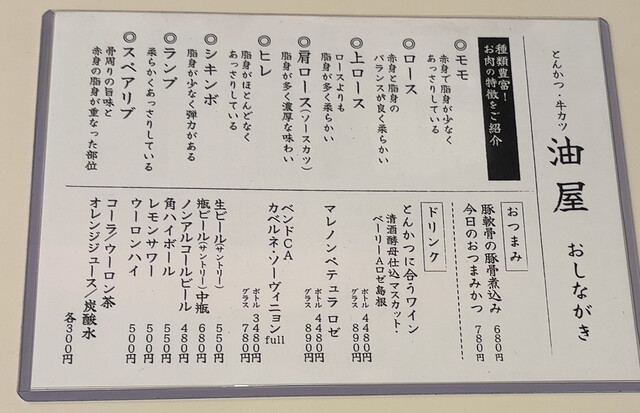 とんかつ・牛カツ
油屋 おしながき
種類豊富!
お肉の特徴をご紹介
◎モモ
赤身で脂身が少なく
あっさりしている
◎ロース
赤身と脂身の
バランスが良く柔らかい
◎上ロース
ロースよりも
脂身が多く柔らかい
◎肩ロース(ソースカツ)
脂身が多く濃厚な味わい
◎ヒレ
脂身がほとんどなく
あっさりしている
◎シキンボ
脂身が少なく弾力がある
◎ランプ
柔らかくあっさりしている
◎スペアリブ
骨周りの旨味と
赤身の脂身が重なった部位
おつまみ
豚軟骨の豚骨煮込み 680円
今日のおつまみかつ 780円
ドリンク
とんかつに合うワイン
清酒酵母仕込マスカット・
ベーリーAロゼ島根
ボトル 4480円
グラス 890円
マレノンペテュラ ロゼ
ボトル 4480円
グラス 890円
ベンドCA
カベルネ・ソーヴィニヨン full
ボトル 3480円
グラス 780円
生ビール(サントリー) 550円
瓶ビール(サントリー)中瓶 680円
ノンアルコールビール 480円
角ハイボール 550円
レモンサワー 500円
ウーロンハイ 500円
コーラ/ウーロン茶
オレンジジュース/炭酸水
各300円